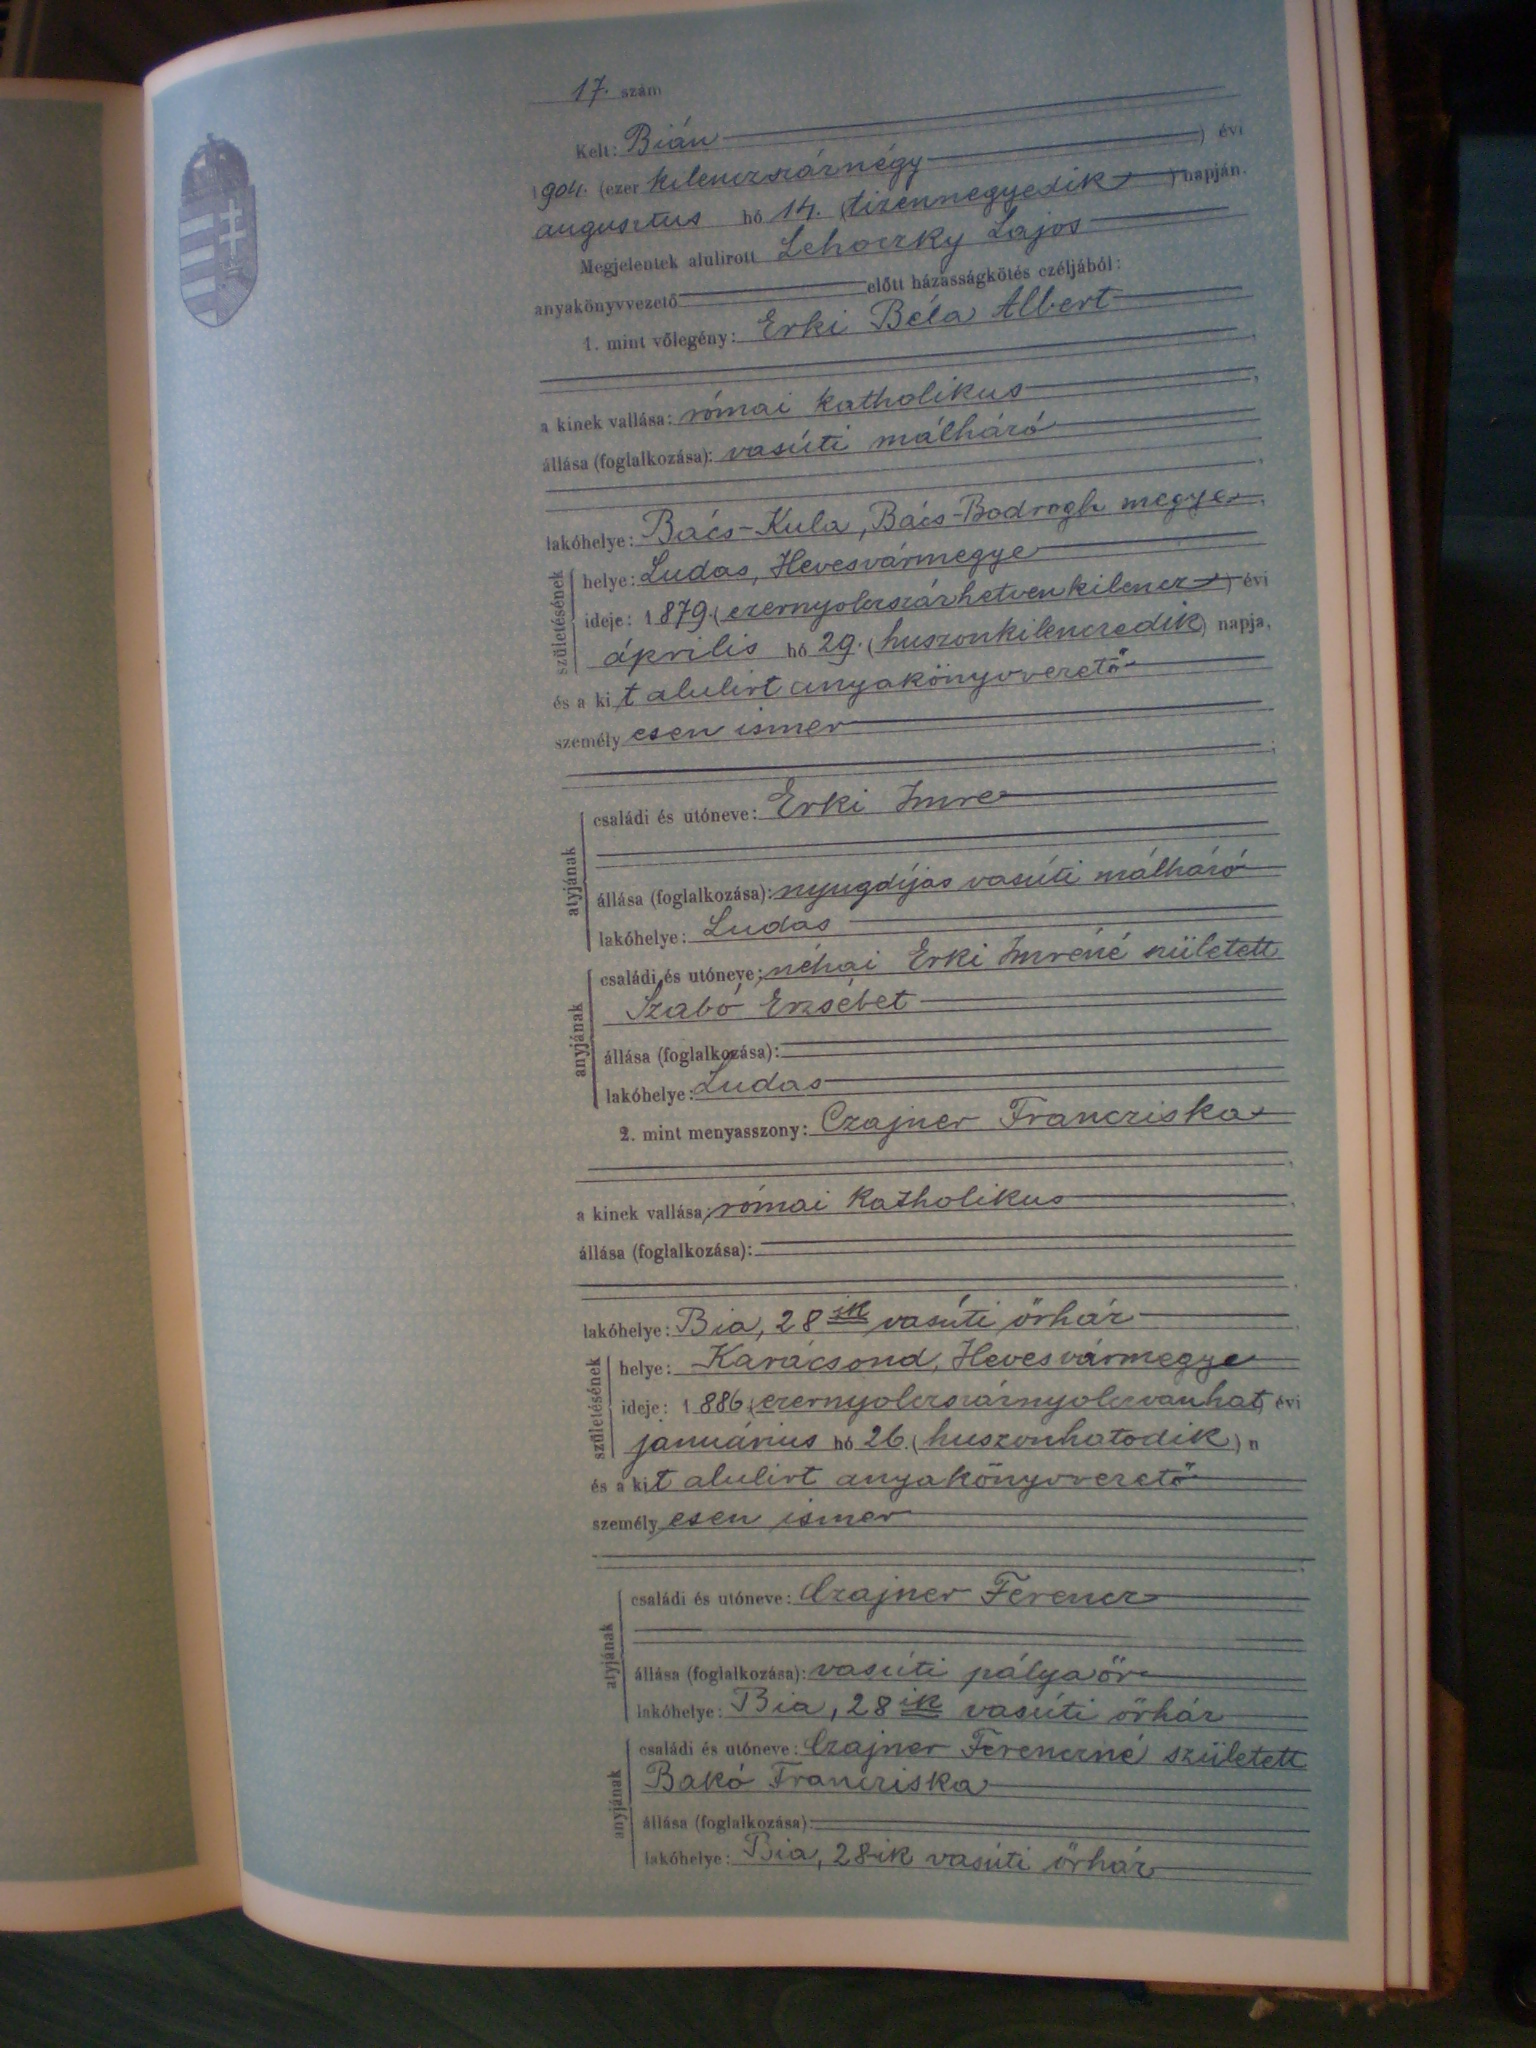 17. szám
Kelt: Bián
1904. (ezer kilenczszáznégy) évi
augusztus hó 14. (tizennegyedik) napján.
Megjelentek alulirott Lehoczky Lajos
anyakönyvvezető előtt házasságkötés czéljából:
1. mint vőlegény: Erki Béla Albert
a kinek vallása: római katholikus
állása (foglalkozása): vasúti málházó
lakóhelye: Bács-Kula, Bács-Bodrogh megye,
születésének
helye: Ludas, Hevesvármegye
ideje: 1879. (ezernyolczszázhetvenkilencz) évi
április hó 29. (huszonkilenczedik) napja,
és a kit alulirt anyakönyvvezető
személyesen ismer
atyjának
családi és utóneve: Erki Imre
állása (foglalkozása): nyugdíjas vasúti málházó
lakóhelye: Ludas
anyjának
családi és utóneve: néhai Erki Imréné született
Szabó Erzsébet
állása (foglalkozása):
lakóhelye: Ludas
2. mint menyasszony: Czajner Francziska
a kinek vallása: római katholikus
állása (foglalkozása):
lakóhelye: Bia, 28ik vasúti őrház
születésének
helye: Karácsond, Hevesvármegye
ideje: 1886 (ezernyolczszáznyolczvanhat) évi
január​ius hó 26. (huszonhatodik) n
és a kit alulirt anyakönyvvezető
személyesen ismer
atyjának
családi és utóneve: Czajner Ferencz
állása (foglalkozása): vasúti pályaőr
lakóhelye: Bia, 28ik vasúti őrház
anyjának
családi és utóneve: Czajner Ferenczné született
Bakó Francziska
állása (foglalkozása):
lakóhelye: Bia, 28-ik vasúti őrház